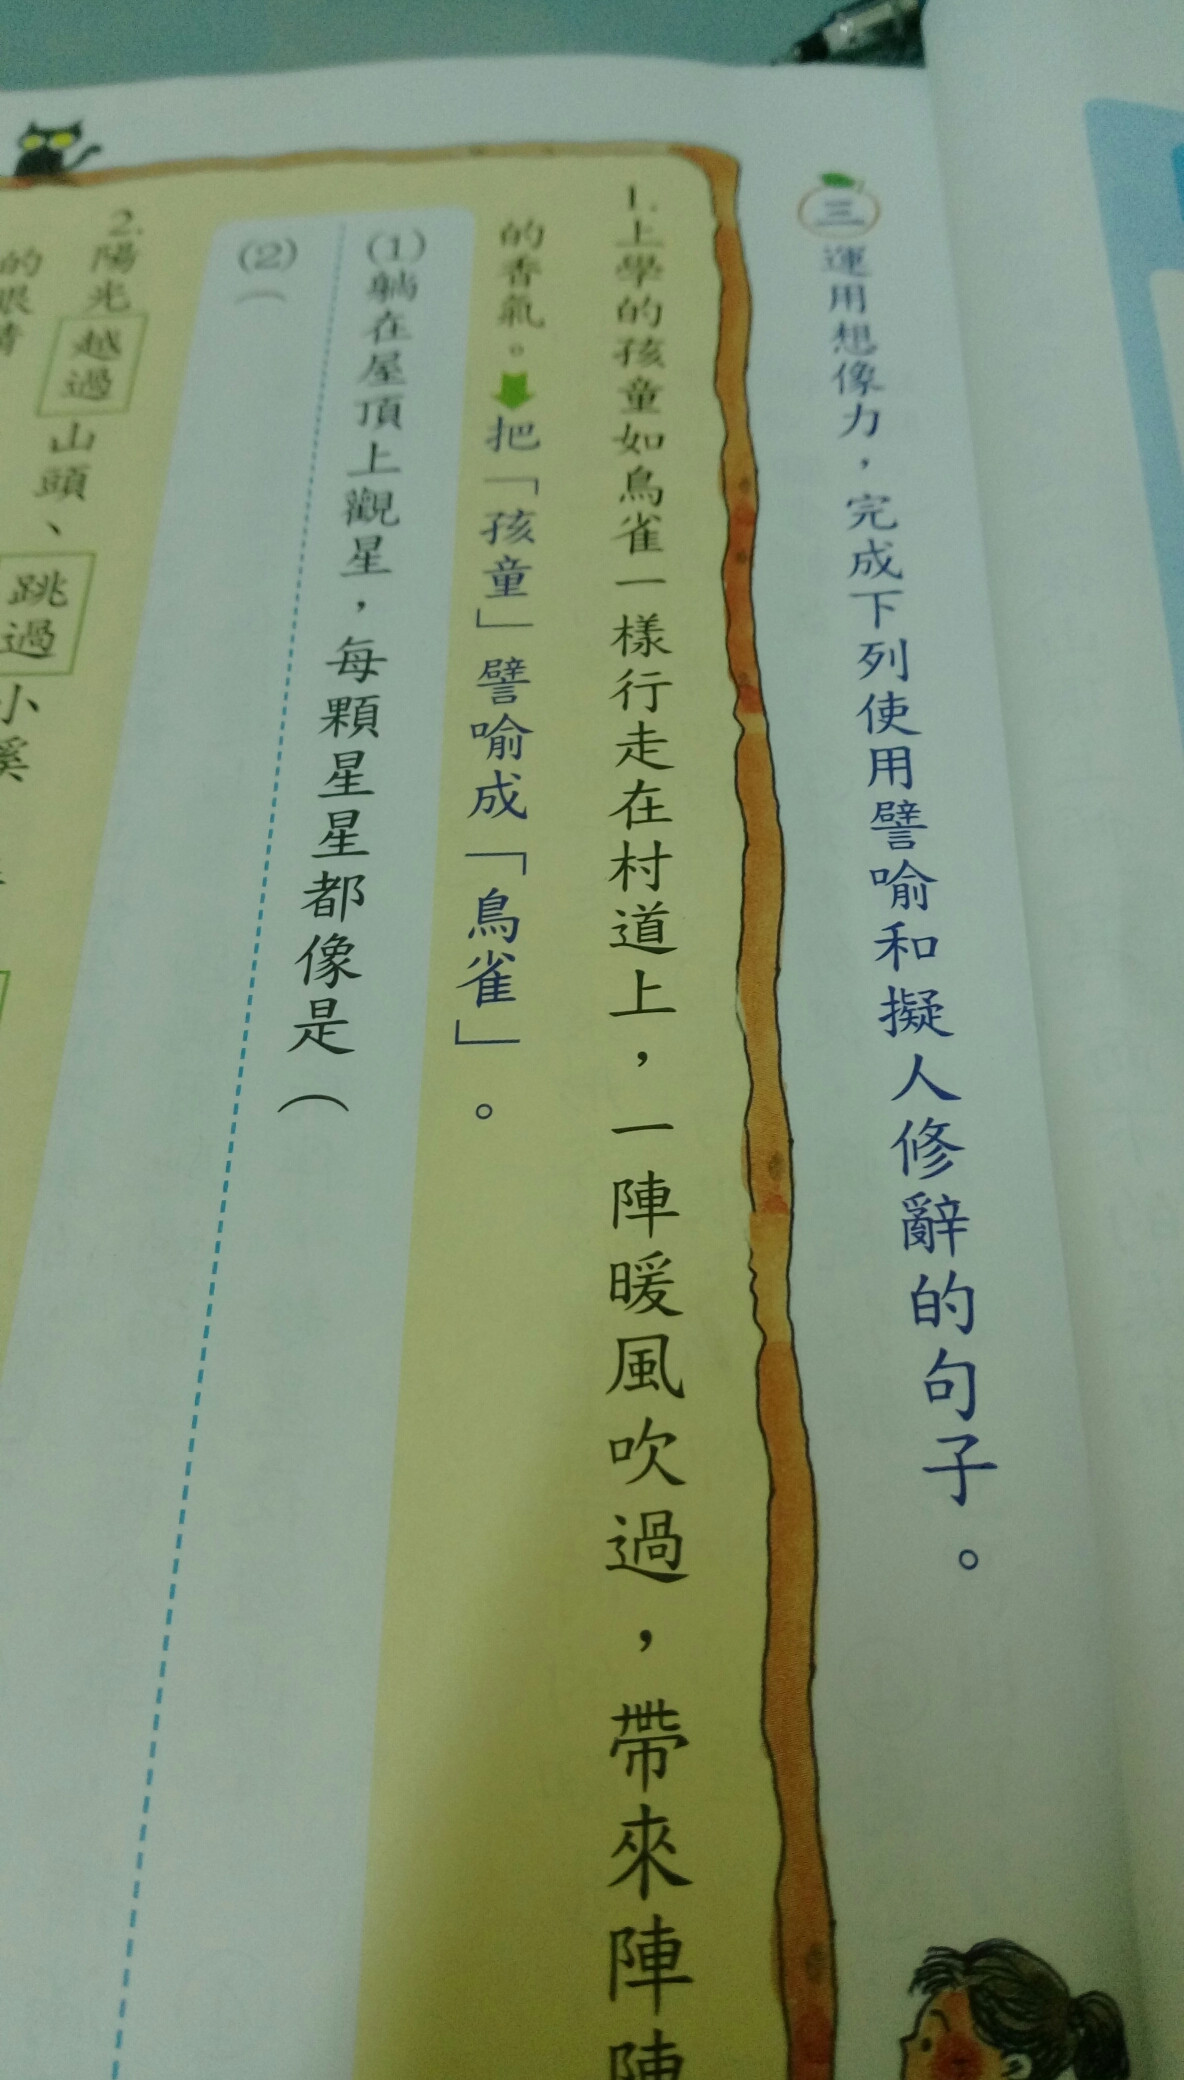 三 運用想像力，完成下列使用譬喻和擬人修辭的句子。
1. 上學的孩童如鳥雀一樣行走在村道上，一陣暖風吹過，帶來陣陣
的香氣。把「孩童」譬喻成「鳥雀」。
(1) 躺在屋頂上觀星，每顆星星都像是（
(2)（
2. 陽光越過山頭、跳過小溪
的眼睛